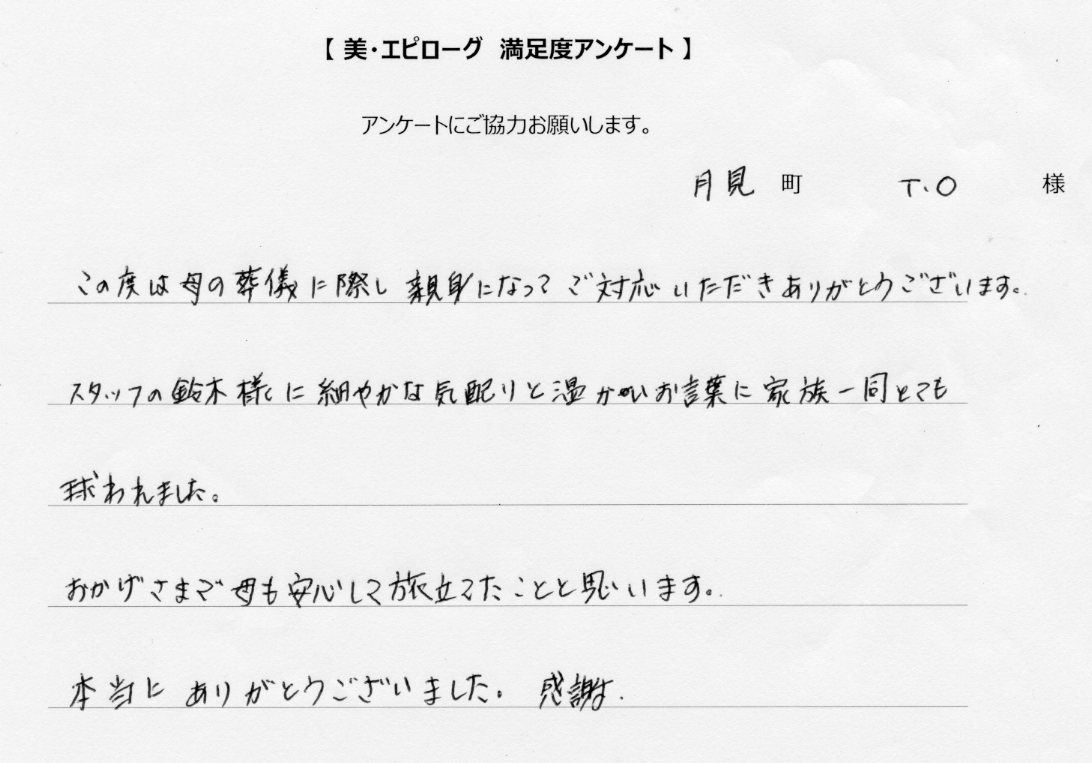 【 美・エピローグ 満足度アンケート 】
アンケートにご協力お願いします。
月見 町 T.O 様
この度は母の葬儀に際し親身になってご対応いただきありがとうございます。
スタッフの鈴木様に細やかな気配りと温かいお言葉に家族一同とても
球われました。
おかげさまで母も安心して旅立てたことと思います。
本当にありがとうございました。感謝.